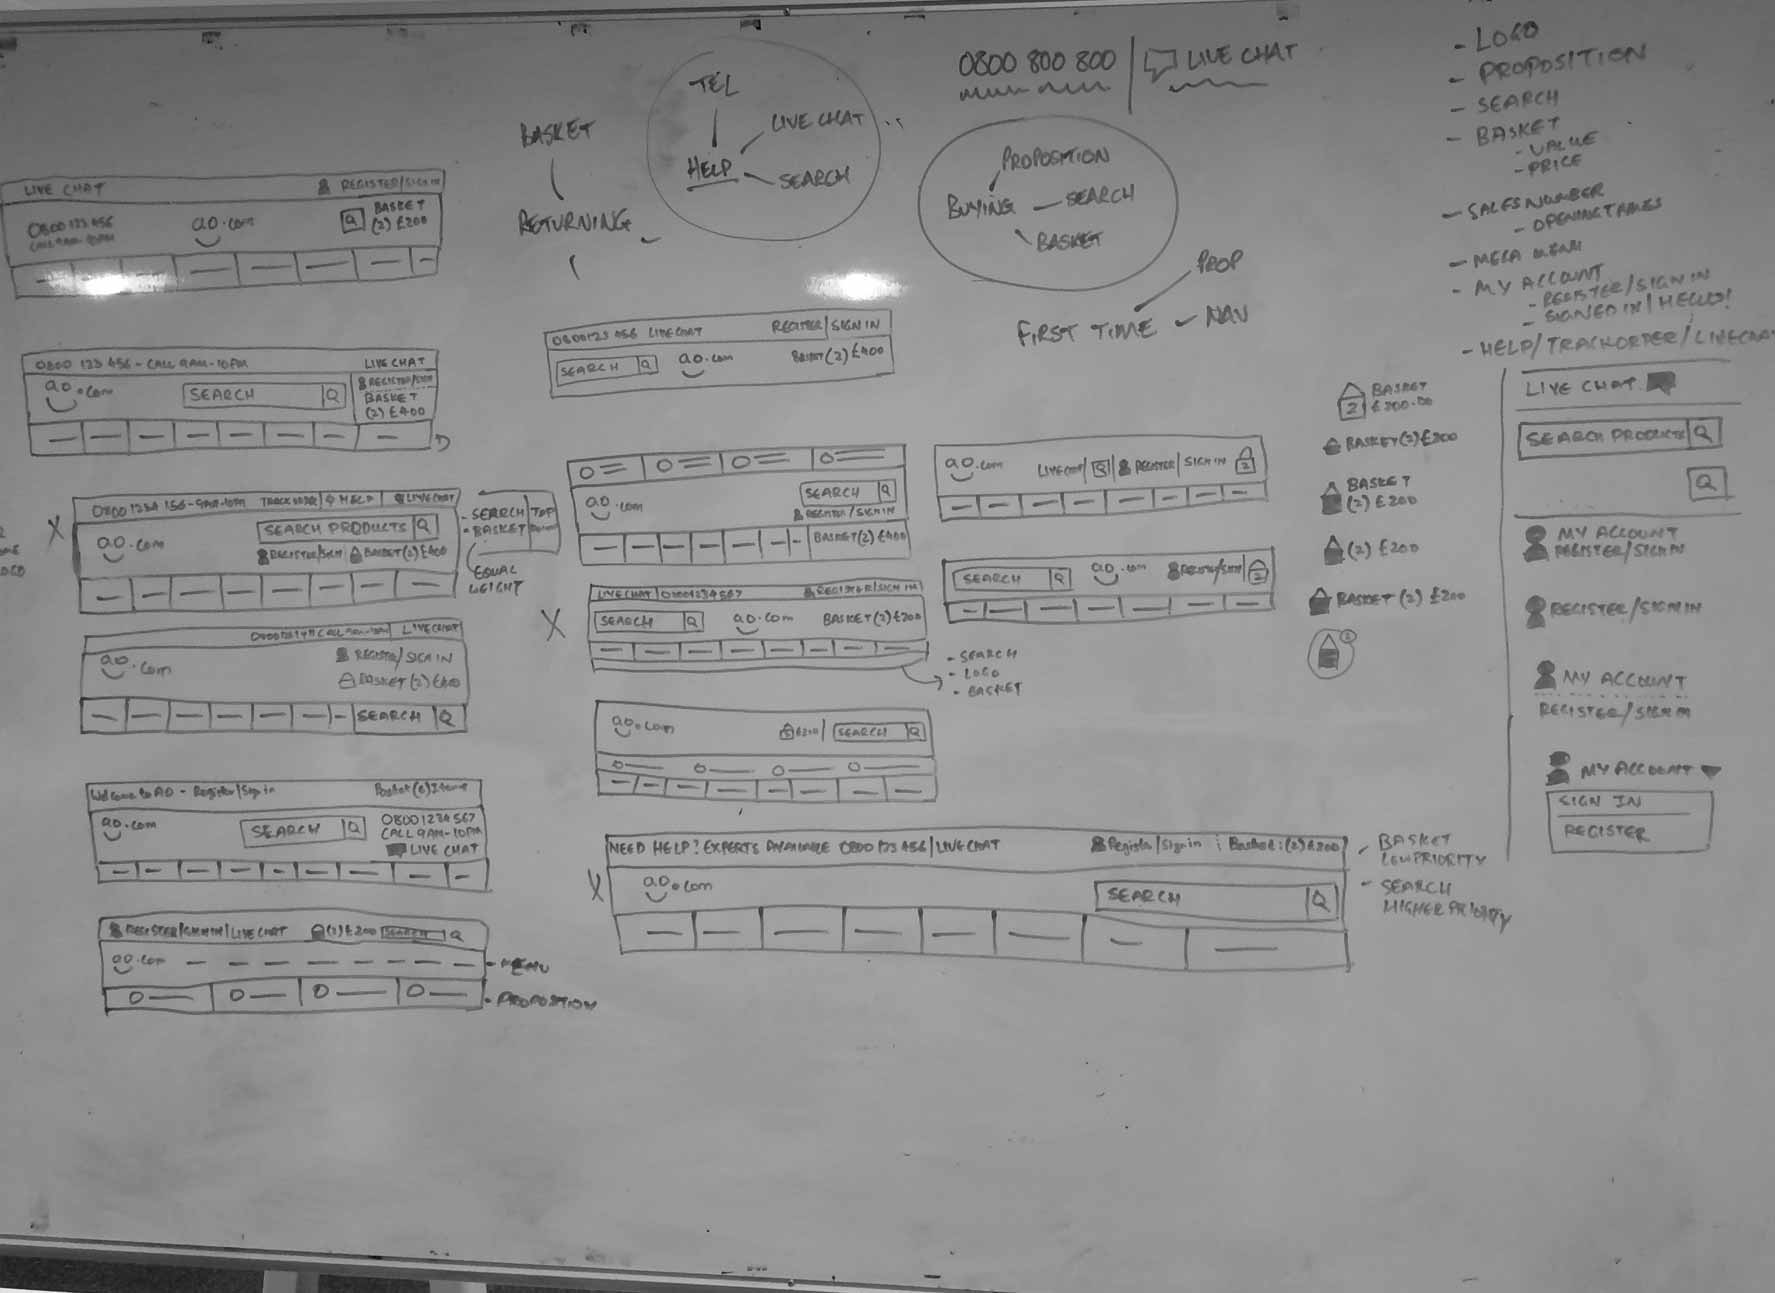 LIVE CHAT
REGISTER/SIGN IN
0800 123 456
CALL 9AM-10PM
ao.com
BASKET
(2) £200
0800 123 456 - CALL 9AM-10PM
LIVE CHAT
ao.com
SEARCH
REGISTER/SIGN
BASKET
(2) £400
X
TRACK ORDER
HELP
LIVE CHAT
ao.com
SEARCH PRODUCTS
REGISTER/SIGN
BASKET (2) £400
- SEARCH
- BASKET
TOP
EQUAL
WEIGHT
CALL 9AM-10PM
LIVE CHAT
ao.com
REGISTER/SIGN IN
BASKET (2) £400
SEARCH
Welcome to AO - Register/Sign in
ao.com
SEARCH
0800 1234 567
CALL 9AM-10PM
LIVE CHAT
REGISTER/SIGN IN/LIVE CHAT
(2) £200
SEARCH
ao.com
- MENU
- PROPOSITION
BASKET
RETURNING
TEL
LIVE CHAT
HELP
SEARCH
0800 800 800
LIVE CHAT
PROPOSITION
BUYING
SEARCH
BASKET
PROP
FIRST TIME
NAV
0800 123 456 LIVE CHAT
REGISTER/SIGN IN
SEARCH
ao.com
BASKET (2) £400
ao.com
SEARCH
REGISTER/SIGN IN
BASKET (2) £400
X
LIVE CHAT/08001234567
REGISTER/SIGN IN
SEARCH
ao.com
BASKET (2) £200
- SEARCH
- LOGO
- BASKET
ao.com
£200
SEARCH
ao.com
LIVE CHAT
REGISTER/SIGN IN
2
SEARCH
ao.com
REGISTER/SIGN
2
X
NEED HELP? EXPERTS AVAILABLE 0800 123 456/LIVE CHAT
Register/Sign in
Basket: (2) £200
ao.com
SEARCH
- BASKET
LOW PRIORITY
- SEARCH
HIGHER PRIORITY
BASKET
2
£200.00
BASKET (2) £200
BASKET
(2) £200
(2) £200
BASKET (2) £200
- LOGO
- PROPOSITION
- SEARCH
- BASKET
- VALUE
- PRICE
- SALES NUMBER
- OPENING TIMES
- MEGA MENU
- MY ACCOUNT
- REGISTER/SIGN IN
- SIGNED IN/HELLO!
- HELP/TRACK ORDER/LIVE CHAT
LIVE CHAT
SEARCH PRODUCTS
MY ACCOUNT
REGISTER/SIGN IN
REGISTER/SIGN IN
MY ACCOUNT
REGISTER/SIGN IN
MY ACCOUNT
SIGN IN
REGISTER